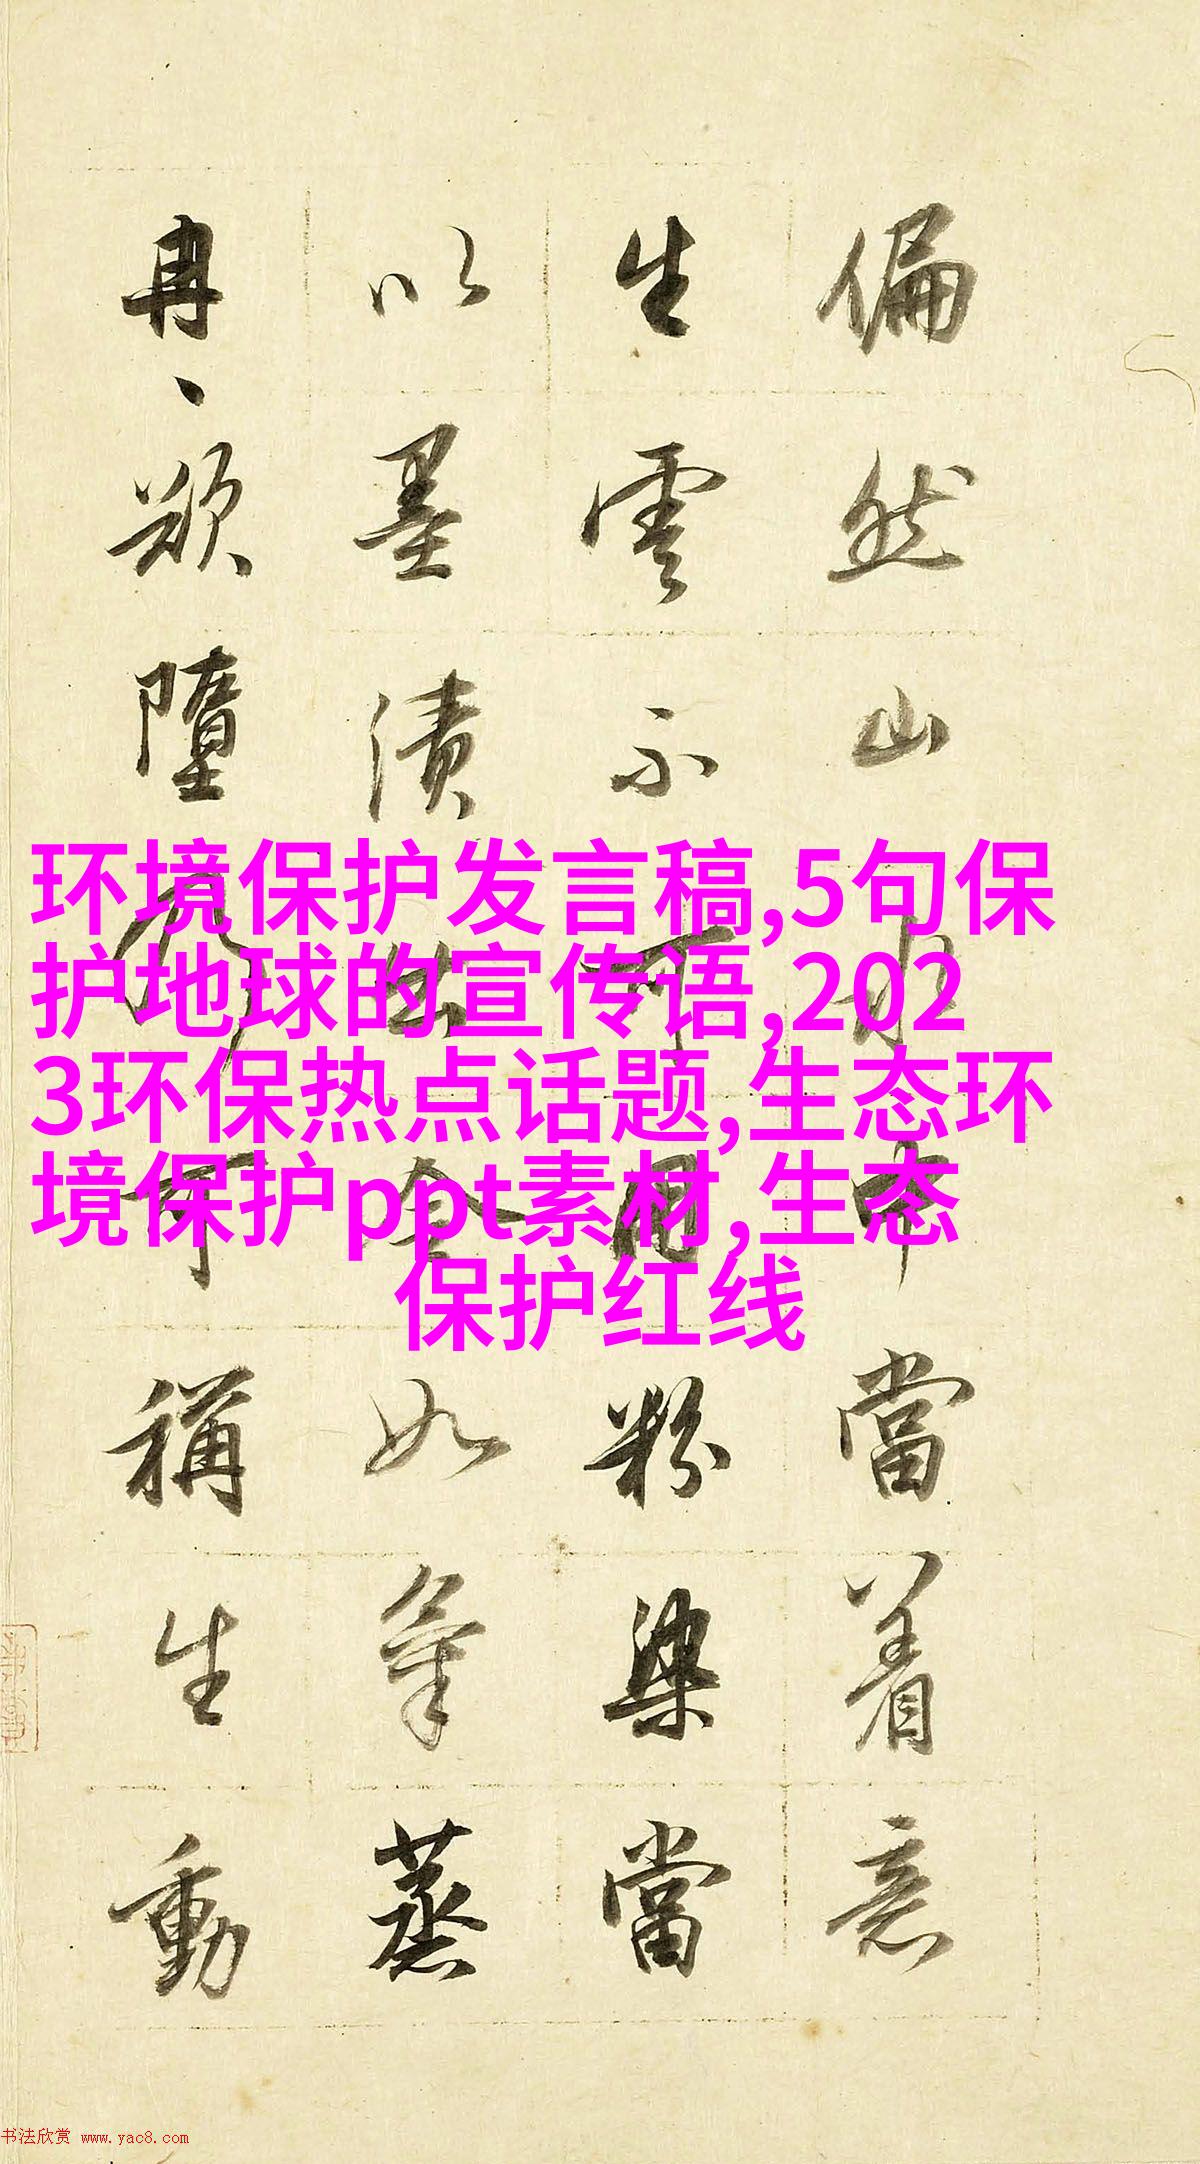 偏然山水中當着意
生雲不可用粉染當
以墨漬出令如氣蒸
冉、欲墮乃可稱生動
环境保护发言稿,5句保
护地球的宣传语,202
3环保热点话题,生态环
境保护ppt素材,生态
保护红线
书法欣赏 www.yac8.com